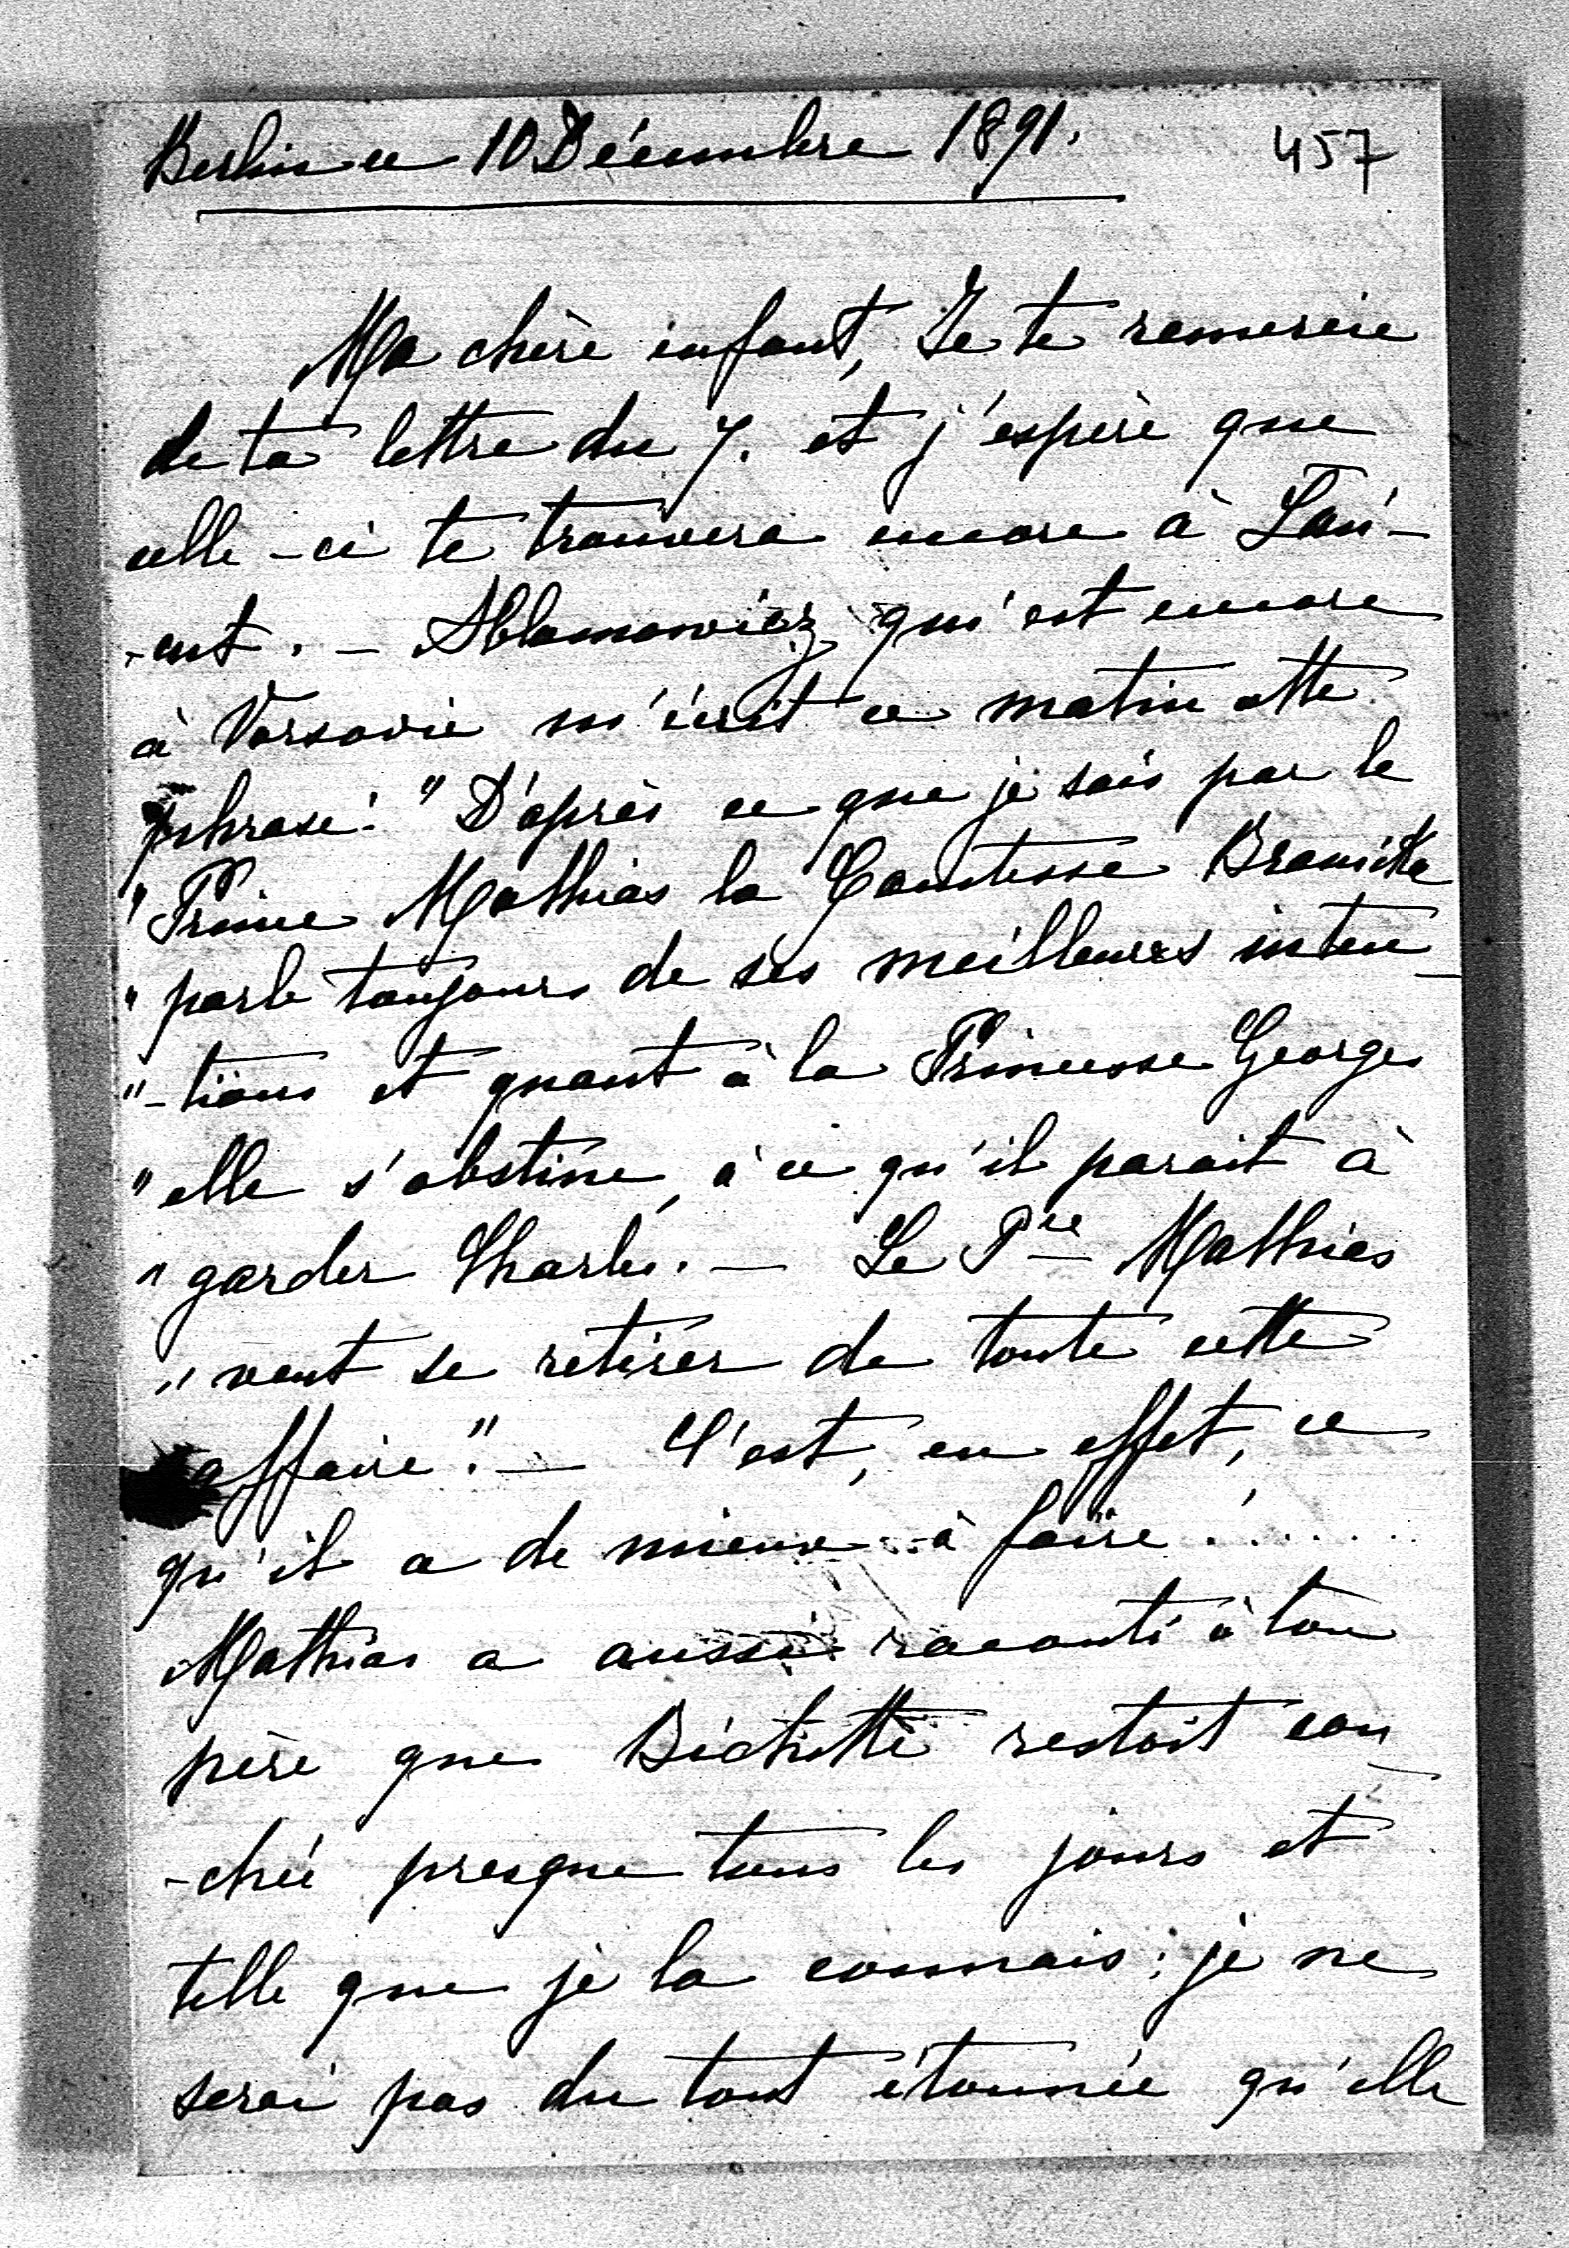 Berlin ce 10 Décembre 1891. 457
Ma chère enfant, Je te remercie
de ta lettre du 7. et j'espère que
celle-ci te trouvera encore à Łań-
-cut. — Ablamowicz qui est encore
à Varsovie m'écrit ce matin cette
phrase: "D'après ce que je sais par le
"Prince Mathias la Comtesse Branicka
"parle toujours de ses meilleures inten-
"-tions et quant à la Princesse Georges
"elle s'obstine, à ce qu'il parait à
"garder Charles. — Le Pce Mathias
"veut se retirer de toute cette
affaire". — C'est, en effet, ce
qu'il a de mieux à faire! ......
Mathias a aussi raconté à ton
père que Bichette restait cou-
-chée presque tous les jours et
telle que je la connais; je ne
serai pas du tout étonnée qu'elle